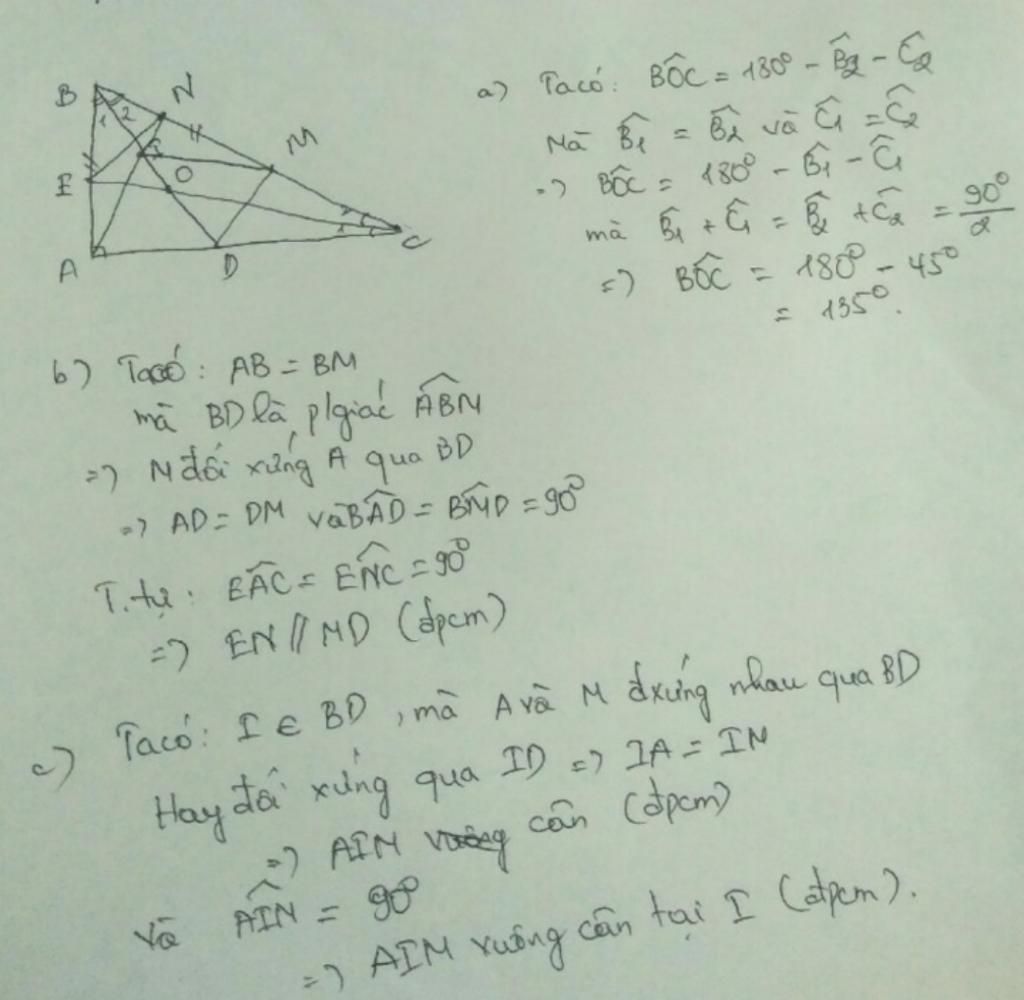 B
N
1
2
M
I
O
E
2
1
C
A
D
a) Ta có: BÔC = 180° - B̂2 - Ĉ2
Mà B̂1 = B̂2 và Ĉ1 = Ĉ2
=> BÔC = 180° - B̂1 - Ĉ1
mà B̂1 + Ĉ1 = B̂2 + Ĉ2 = 90°/2
=> BÔC = 180° - 45°
= 135°.
b) Ta có: AB = BM
mà BD là p/giác ABM
=> M đối xứng A qua BD
=> AD = DM và BAD = BMD = 90°
T.tự: EAC = ENC = 90°
=> EN // MD (đpcm)
c) Ta có: I ∈ BD, mà A và M đxứng nhau qua BD
Hay đối xứng qua ID => IA = IM
=> AIM cân (đpcm)
và AIM = 90°
=> AIM vuông cân tại I (đpcm).